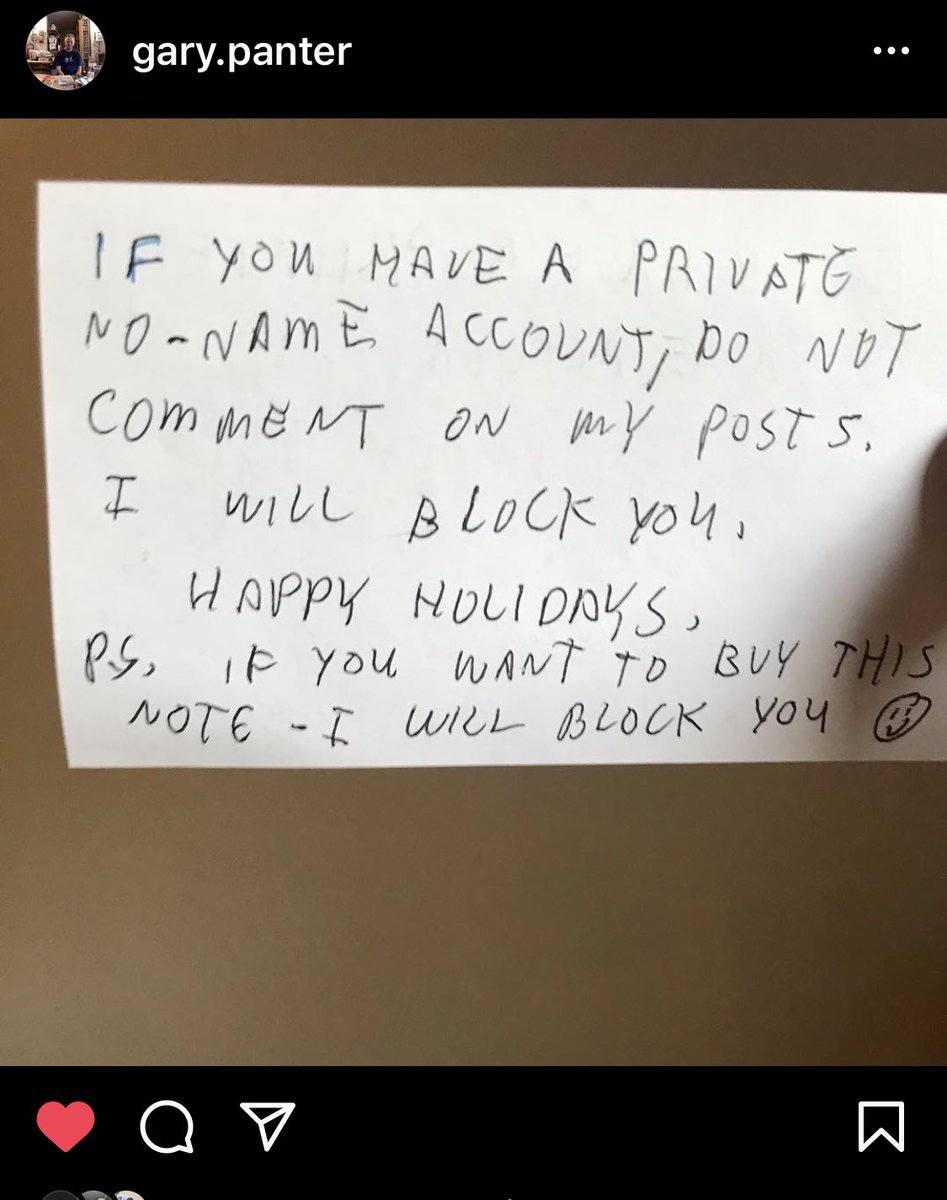 gary.panter
IF YOU HAVE A PRIVATE
NO-NAME ACCOUNT, DO NOT
COMMENT ON MY POSTS.
I WILL BLOCK YOU.
HAPPY HOLIDAYS,
PS, IF YOU WANT TO BUY THIS
NOTE - I WILL BLOCK YOU